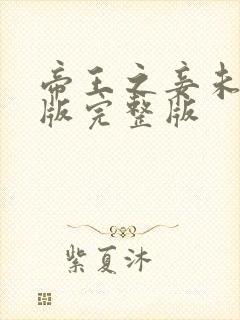 帝王之妾未
版完整版
紫夏沐